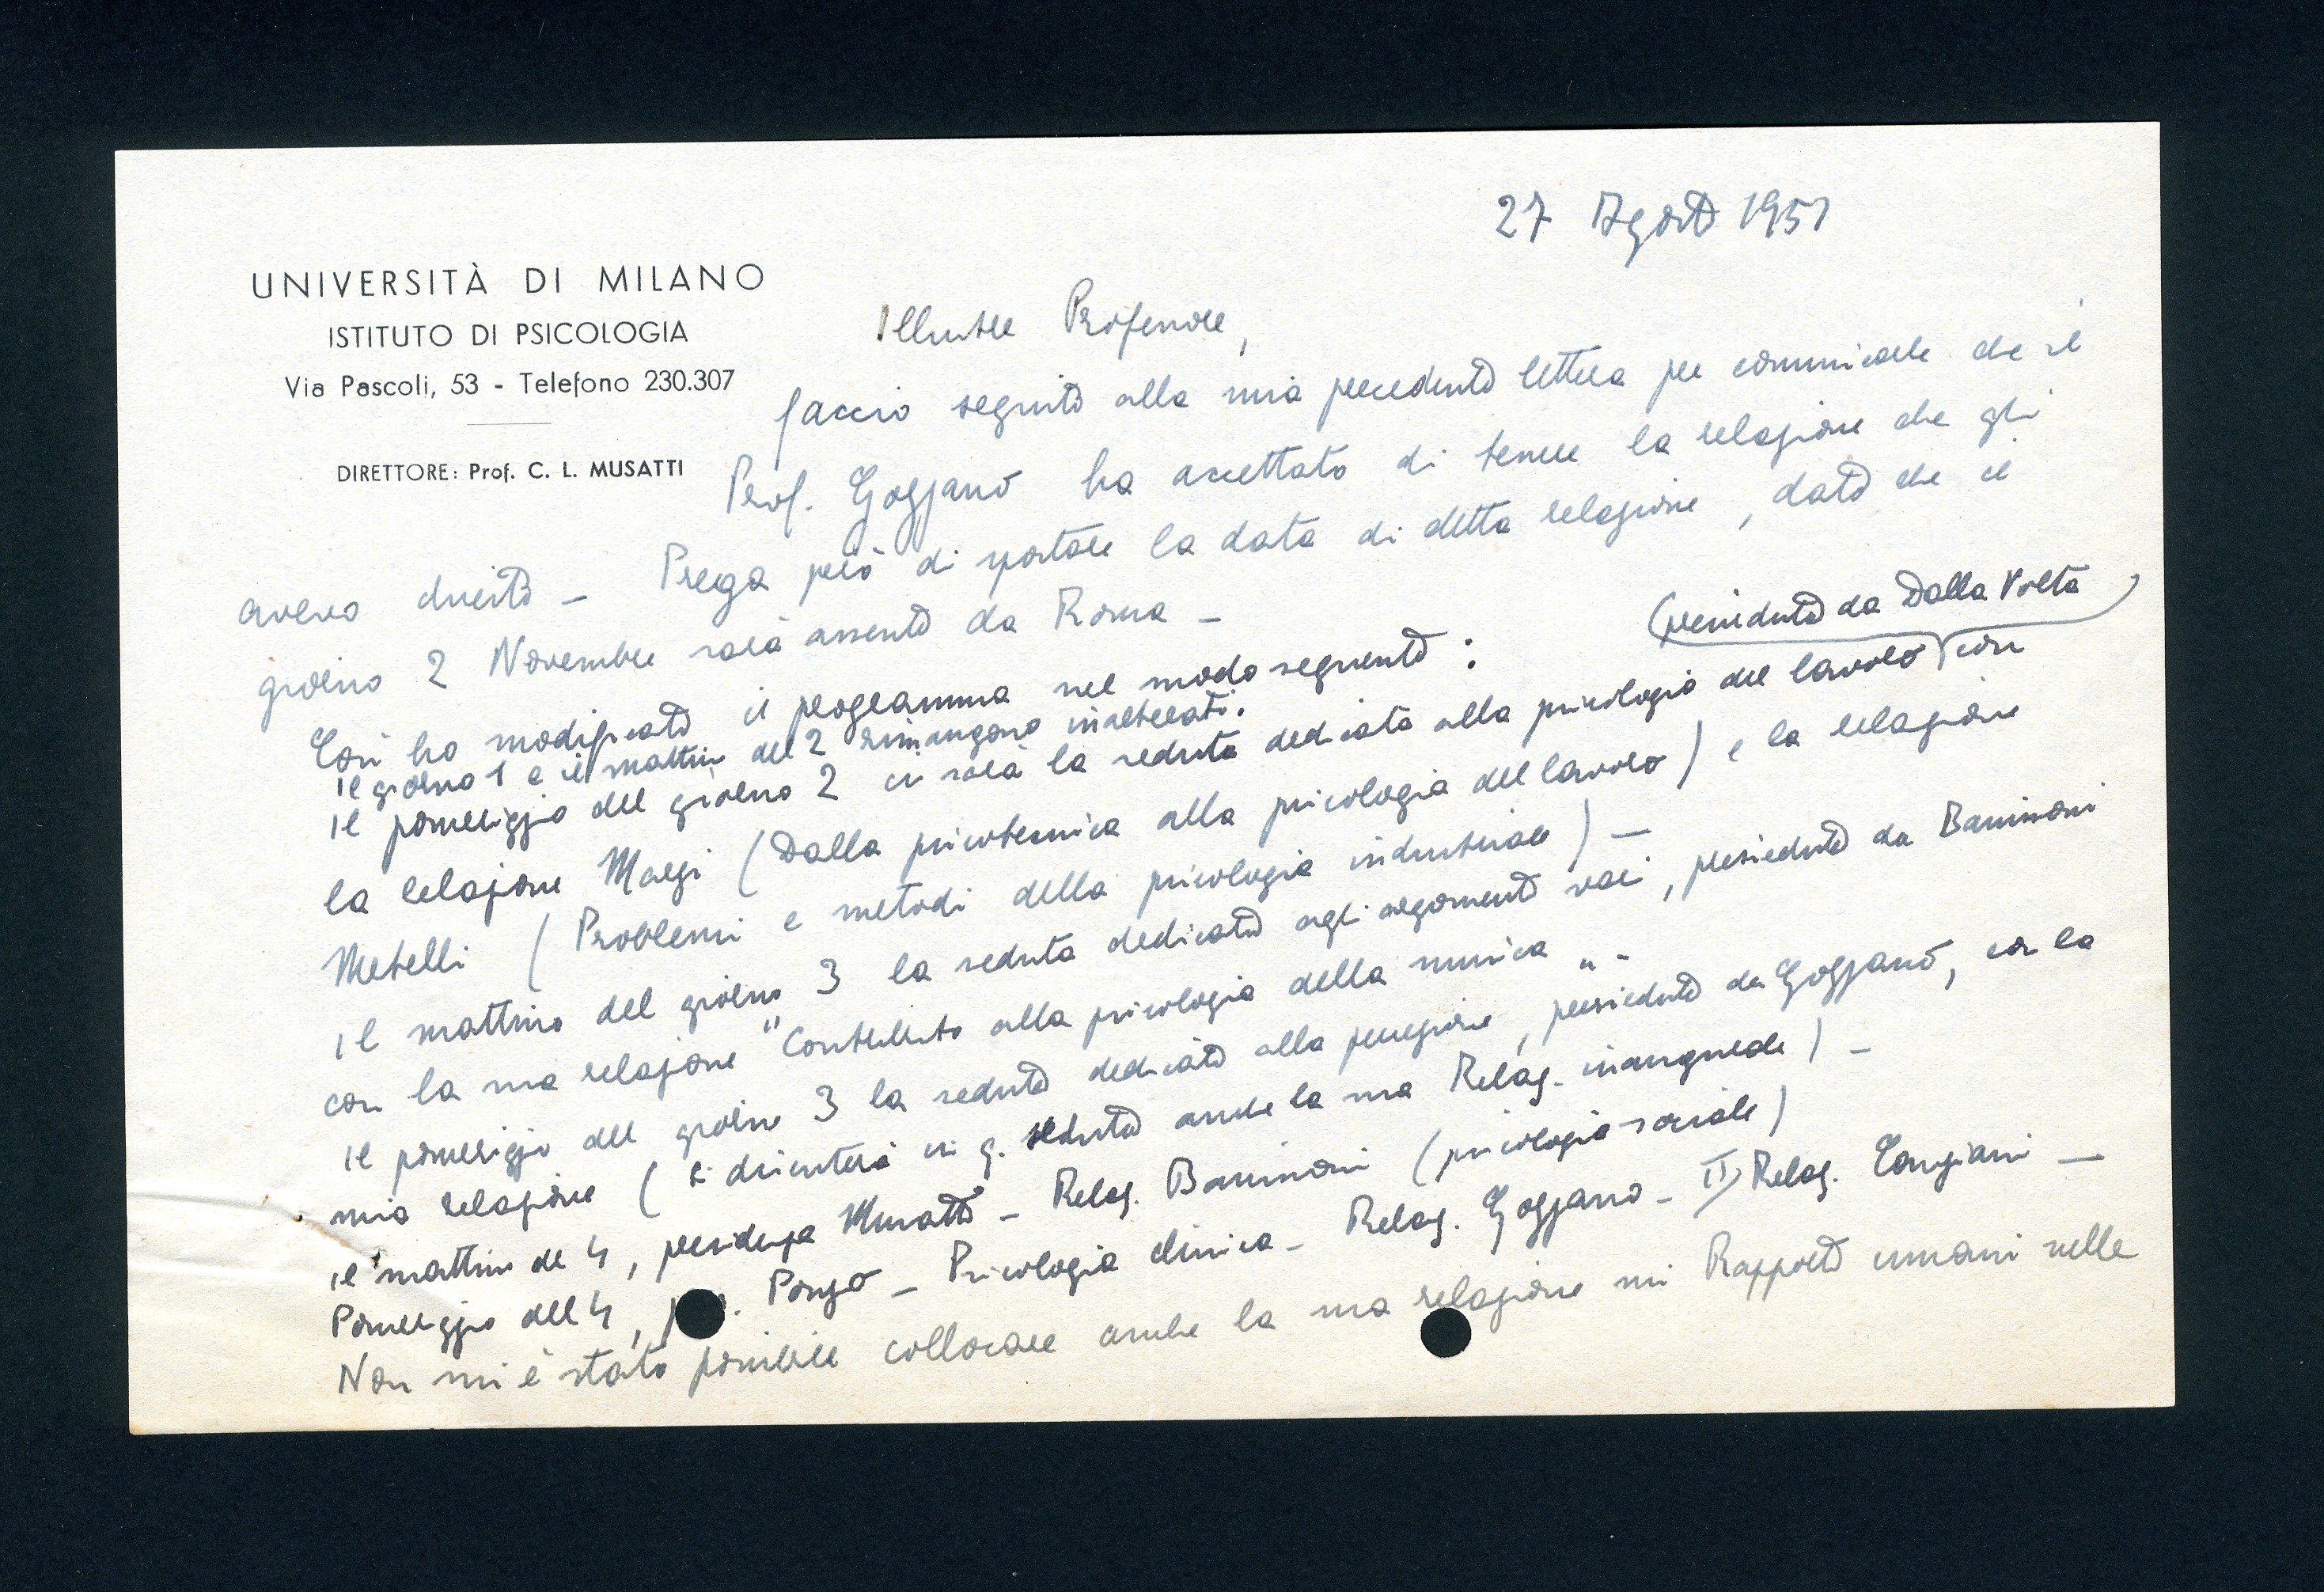 27 Agosto 1951
UNIVERSITÀ DI MILANO
ISTITUTO DI PSICOLOGIA
Via Pascoli, 53 - Telefono 230.307
DIRETTORE: Prof. C. L. MUSATTI
Illustre Professore,
faccio seguito alla mia precedente lettera per comunicarle che il
Prof. Gozzano ha accettato di tenere la relazione che gli
avevo chiesto - Prega però di spostare la data di detta relazione, dato che il
giorno 2 Novembre sarà assente da Roma -
Così ho modificato il programma nel modo seguente:
Il giorno 1 e il mattino del 2 rimangono inalterati.
(presieduta da Dalla Volta)
Il pomeriggio del giorno 2 ci sarà la seduta dedicata alla psicologia del lavoro con
la relazione Marzi (Dalla psicotecnica alla psicologia del lavoro) e la relazione
Metelli (Problemi e metodi della psicologia industriale) -
Il mattino del giorno 3 la seduta dedicata agli argomenti vari, presieduta da Banissoni
con la sua relazione "Contributo alla psicologia della musica" -
Il pomeriggio del giorno 3 la seduta dedicata alla percezione, presieduta da Gozzano, con la
mia relazione (si discuterà in q. seduta anche la sua Relaz. inaugurale) -
Il mattino del 4, presidenza Musatti - Relaz. Banissoni (psicologia sociale)
Pomeriggio del 4, Ponzo - Psicologia clinica - Relaz. Gozzano - II) Relaz. Cargiani -
Non mi è stato possibile collocare anche la sua relazione sui Rapporti umani nelle